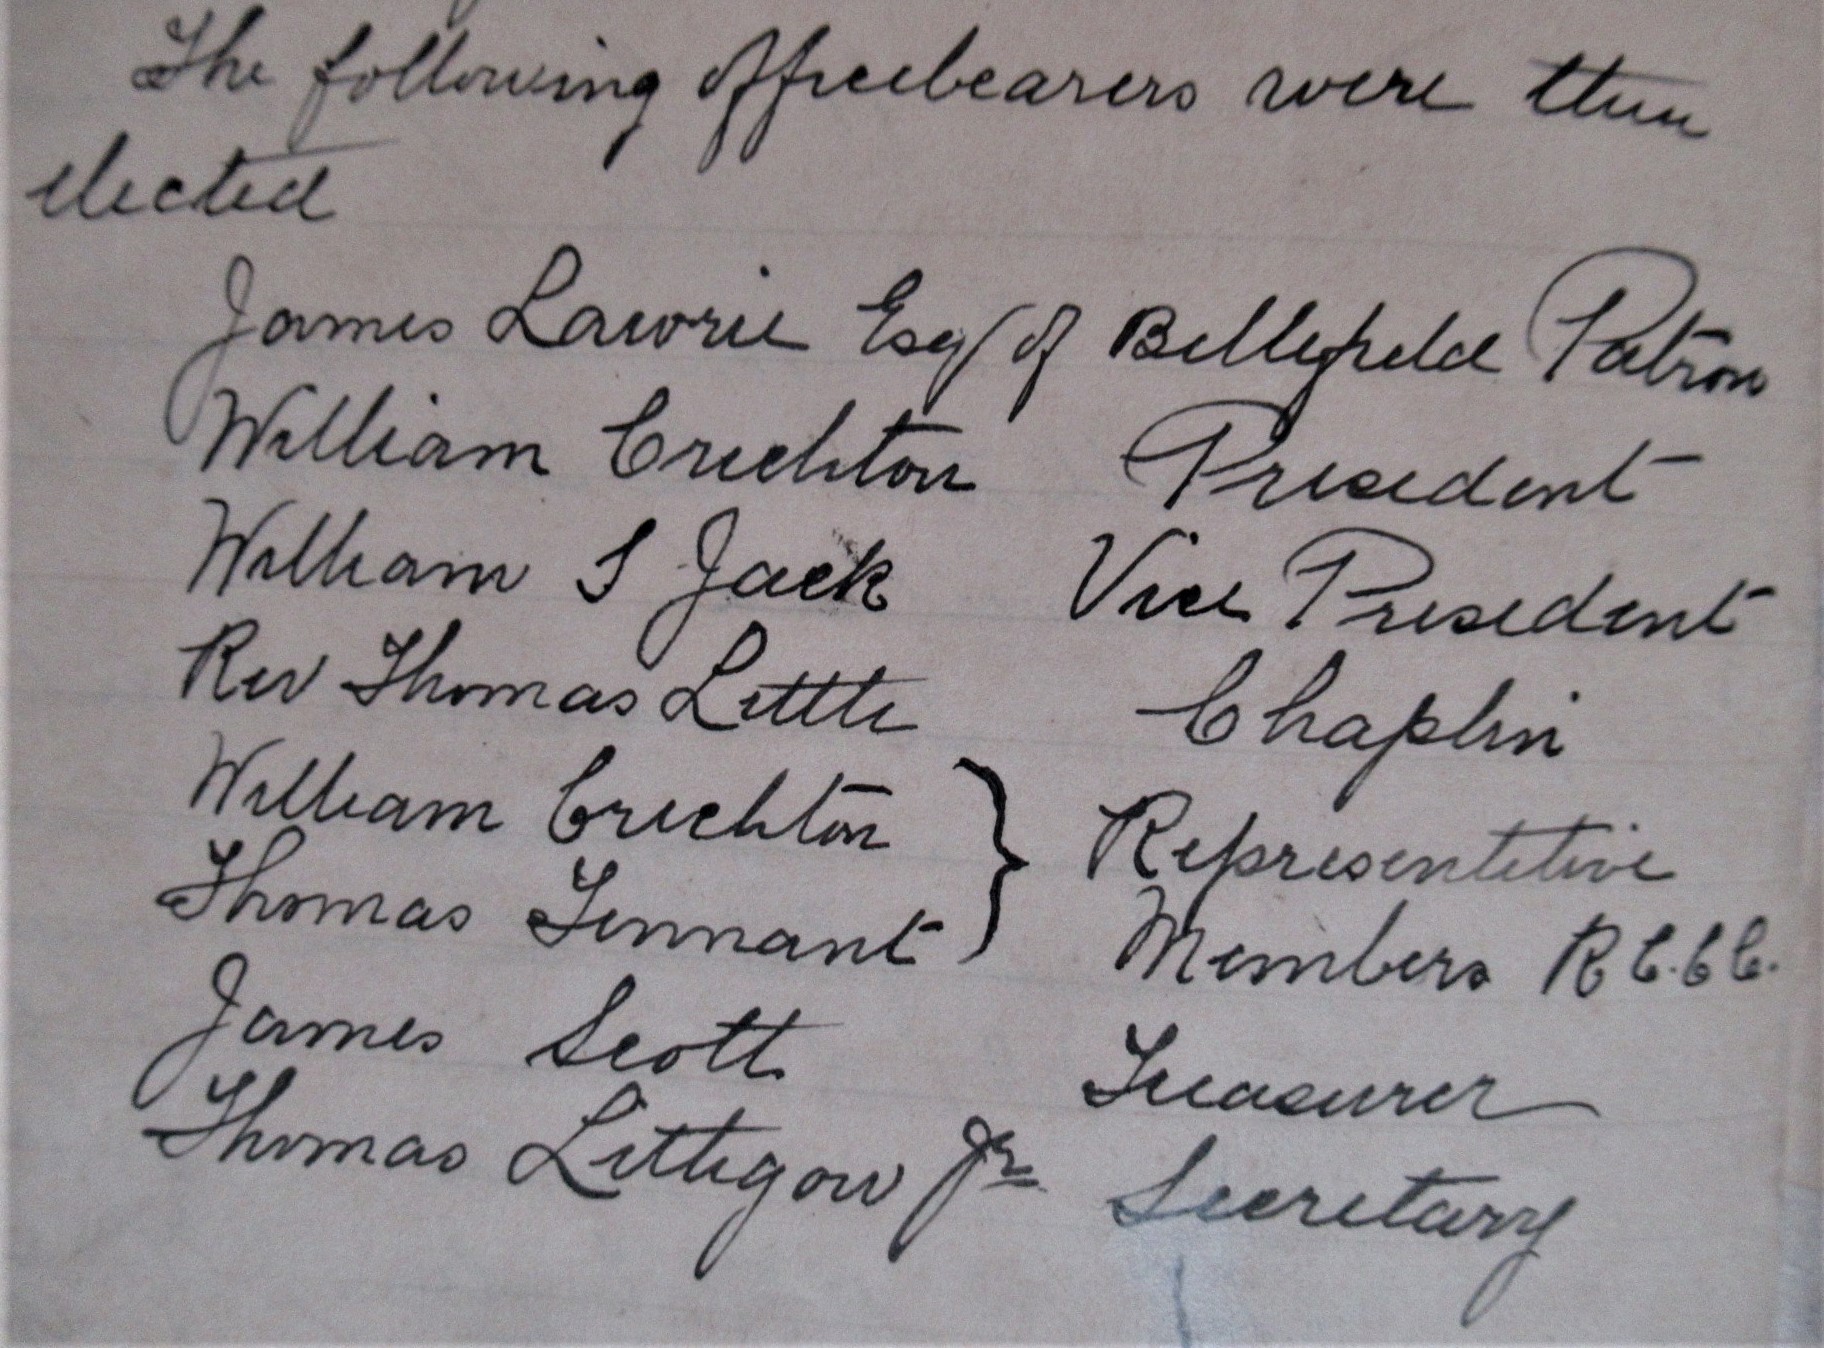 The following officebearers were then
elected
James Lawrie Esq of Bellefield Patron
William Crichton President
William S Jack Vice President
Rev Thomas Little Chaplin
William Crichton } Representitive
Thomas Tennant Members R C. C C.
James Scott Treasurer
Thomas Littlegow Jr Secretary